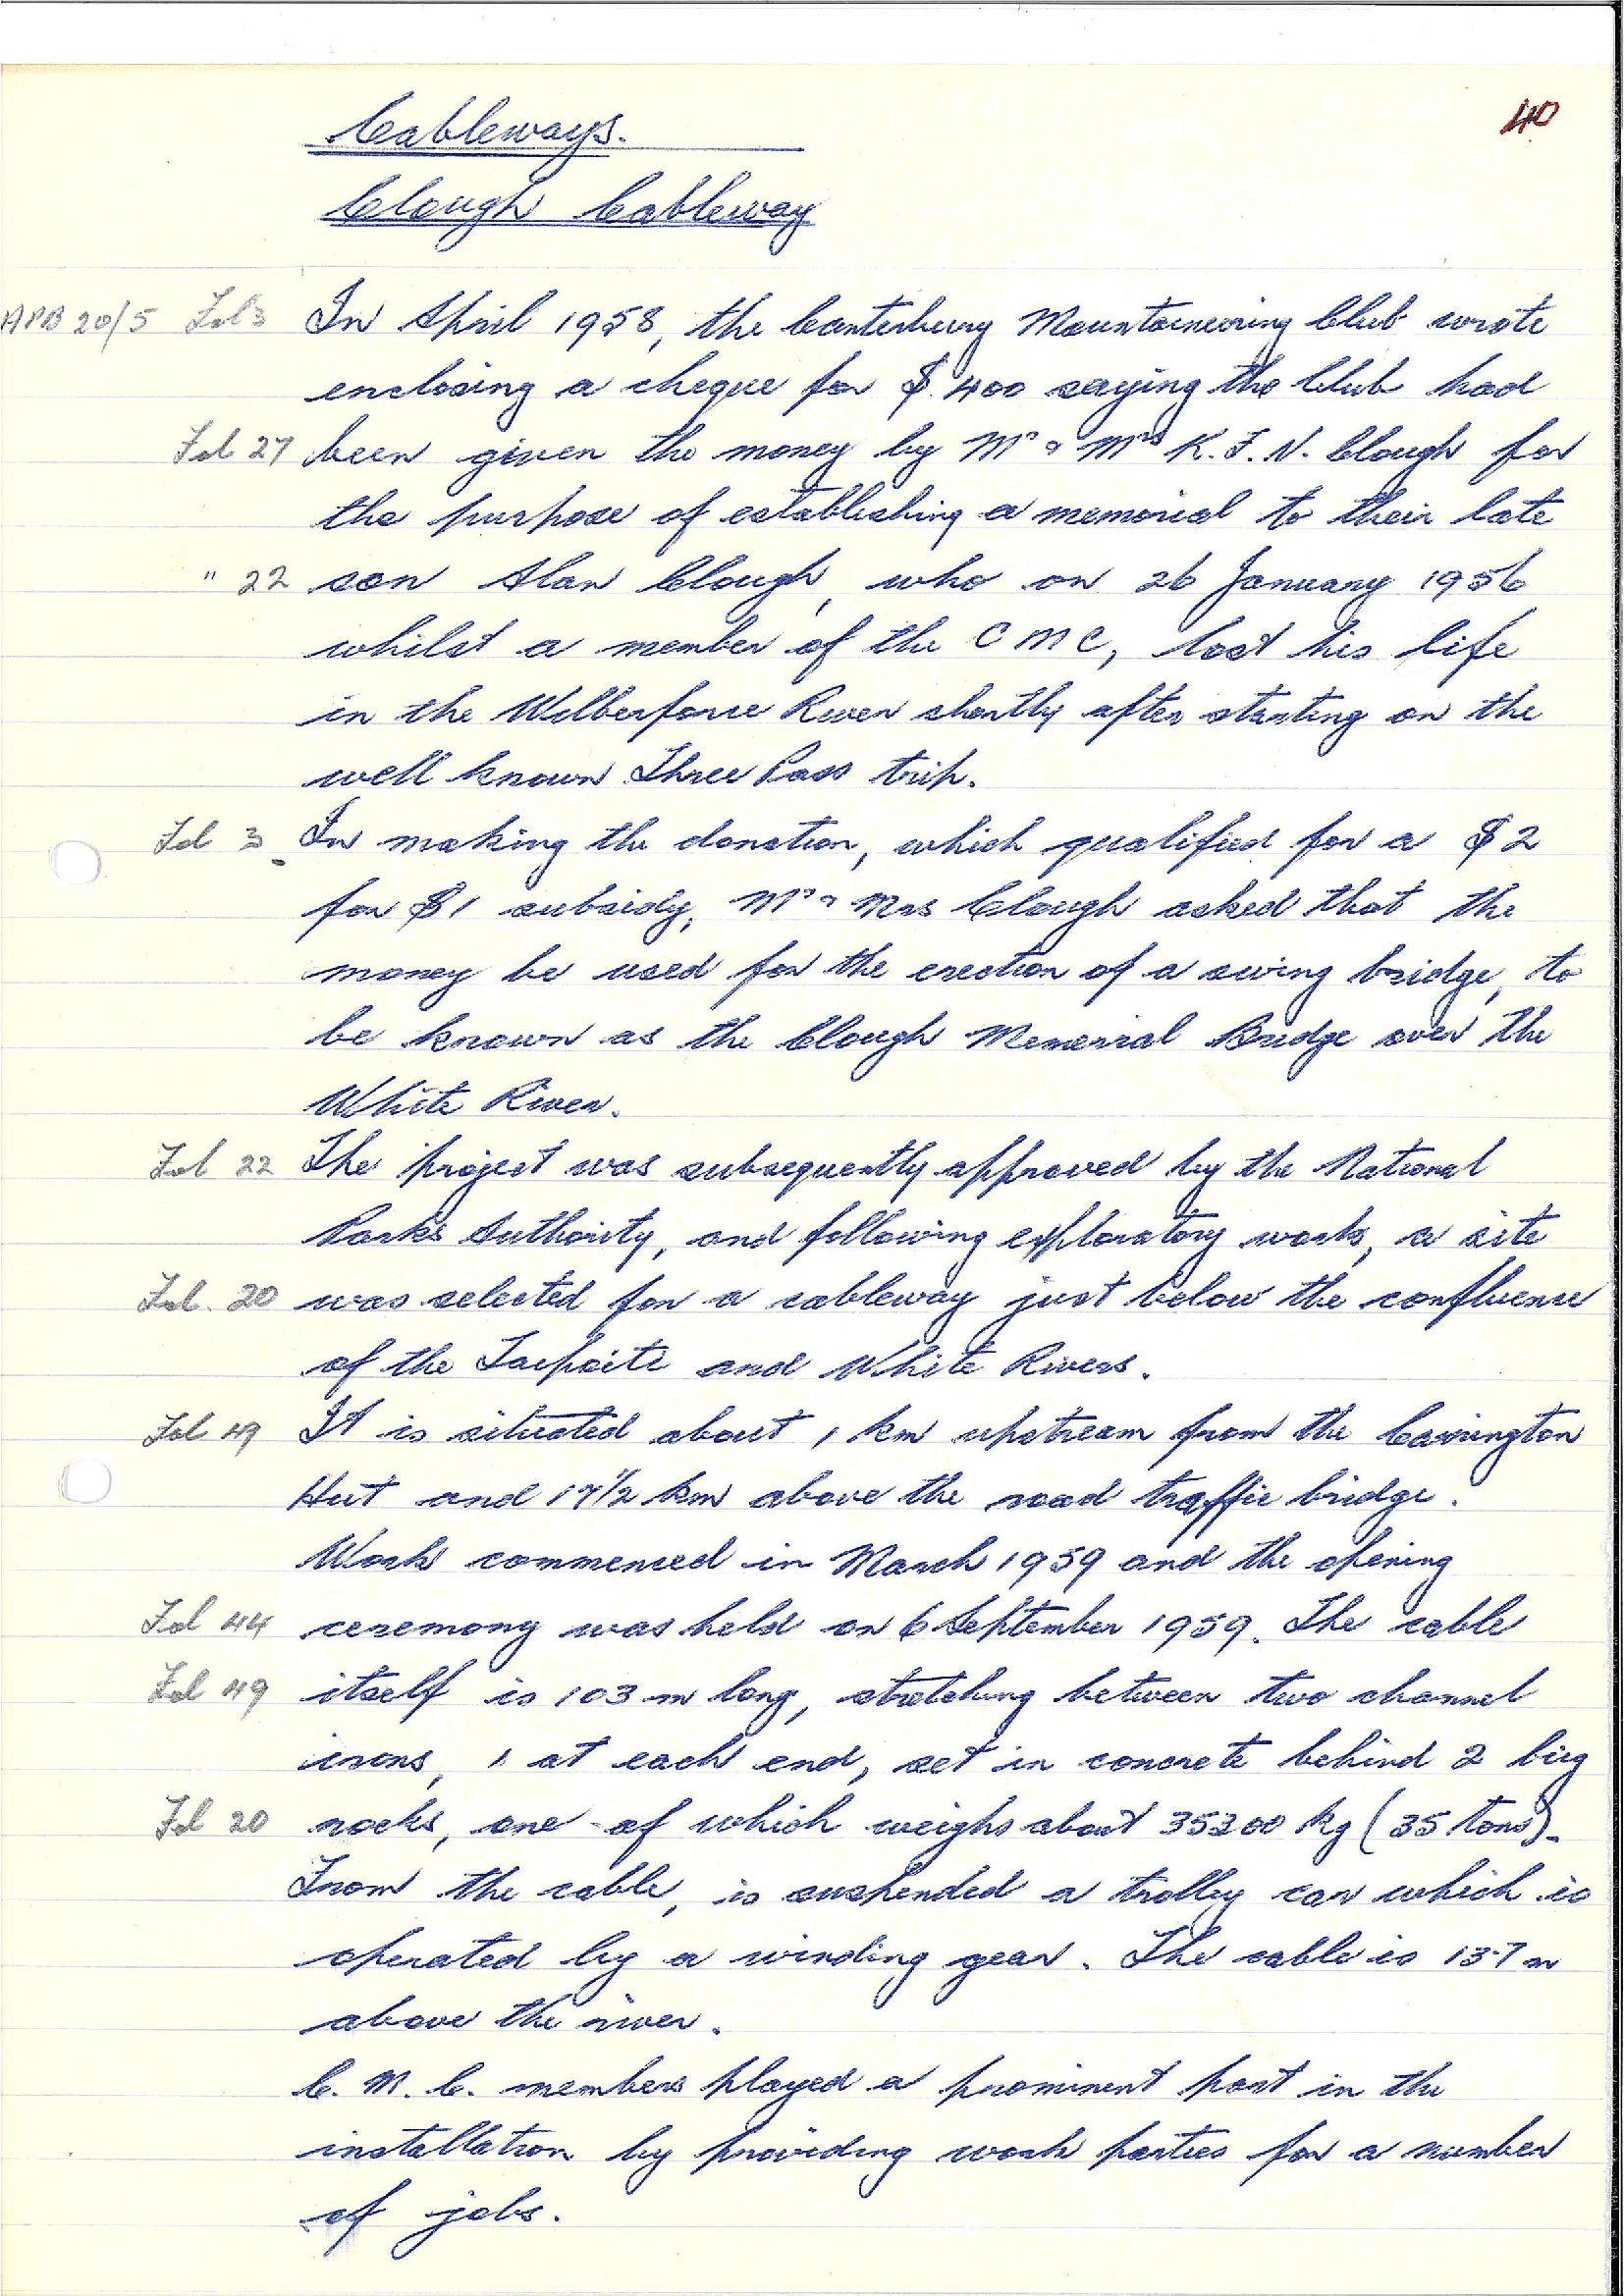 40
Cableways.
Clough Cableway
APB 20/5 Fol 3 In April 1958, the Canterbury Mountaineering Club wrote
enclosing a cheque for $400 saying the Club had
Fol 27 been given the money by Mr & Mrs K.F.N. Clough for
the purpose of establishing a memorial to their late
" 22 son Alan Clough, who on 26 January 1956
whilst a member of the CMC, lost his life
in the Wilberforce River shortly after starting on the
well known Three Pass trip.
Fol 3 In making the donation, which qualified for a $2
for $1 subsidy, Mr & Mrs Clough asked that the
money be used for the erection of a swing bridge, to
be known as the Clough Memorial Bridge over the
White River.
Fol 22 The project was subsequently approved by the National
Parks Authority, and following exploratory work, a site
Fol. 20 was selected for a cableway just below the confluence
of the Taipoiti and White Rivers.
Fol 49 It is situated about 1 km upstream from the Carrington
Hut and 17 1/2 km above the road traffic bridge.
Work commenced in March 1959 and the opening
Fol 44 ceremony was held on 6 September 1959. The cable
Fol 49 itself is 103 m long, stretching between two channel
irons, 1 at each end, set in concrete behind 2 big
Fol 20 rocks, one of which weighs about 35300 kg (35 tons).
From the cable, is suspended a trolley car which is
operated by a winding gear. The cable is 13.7 m
above the river.
C. M. C. members played a prominent part in the
installation by providing work parties for a number
of jobs.